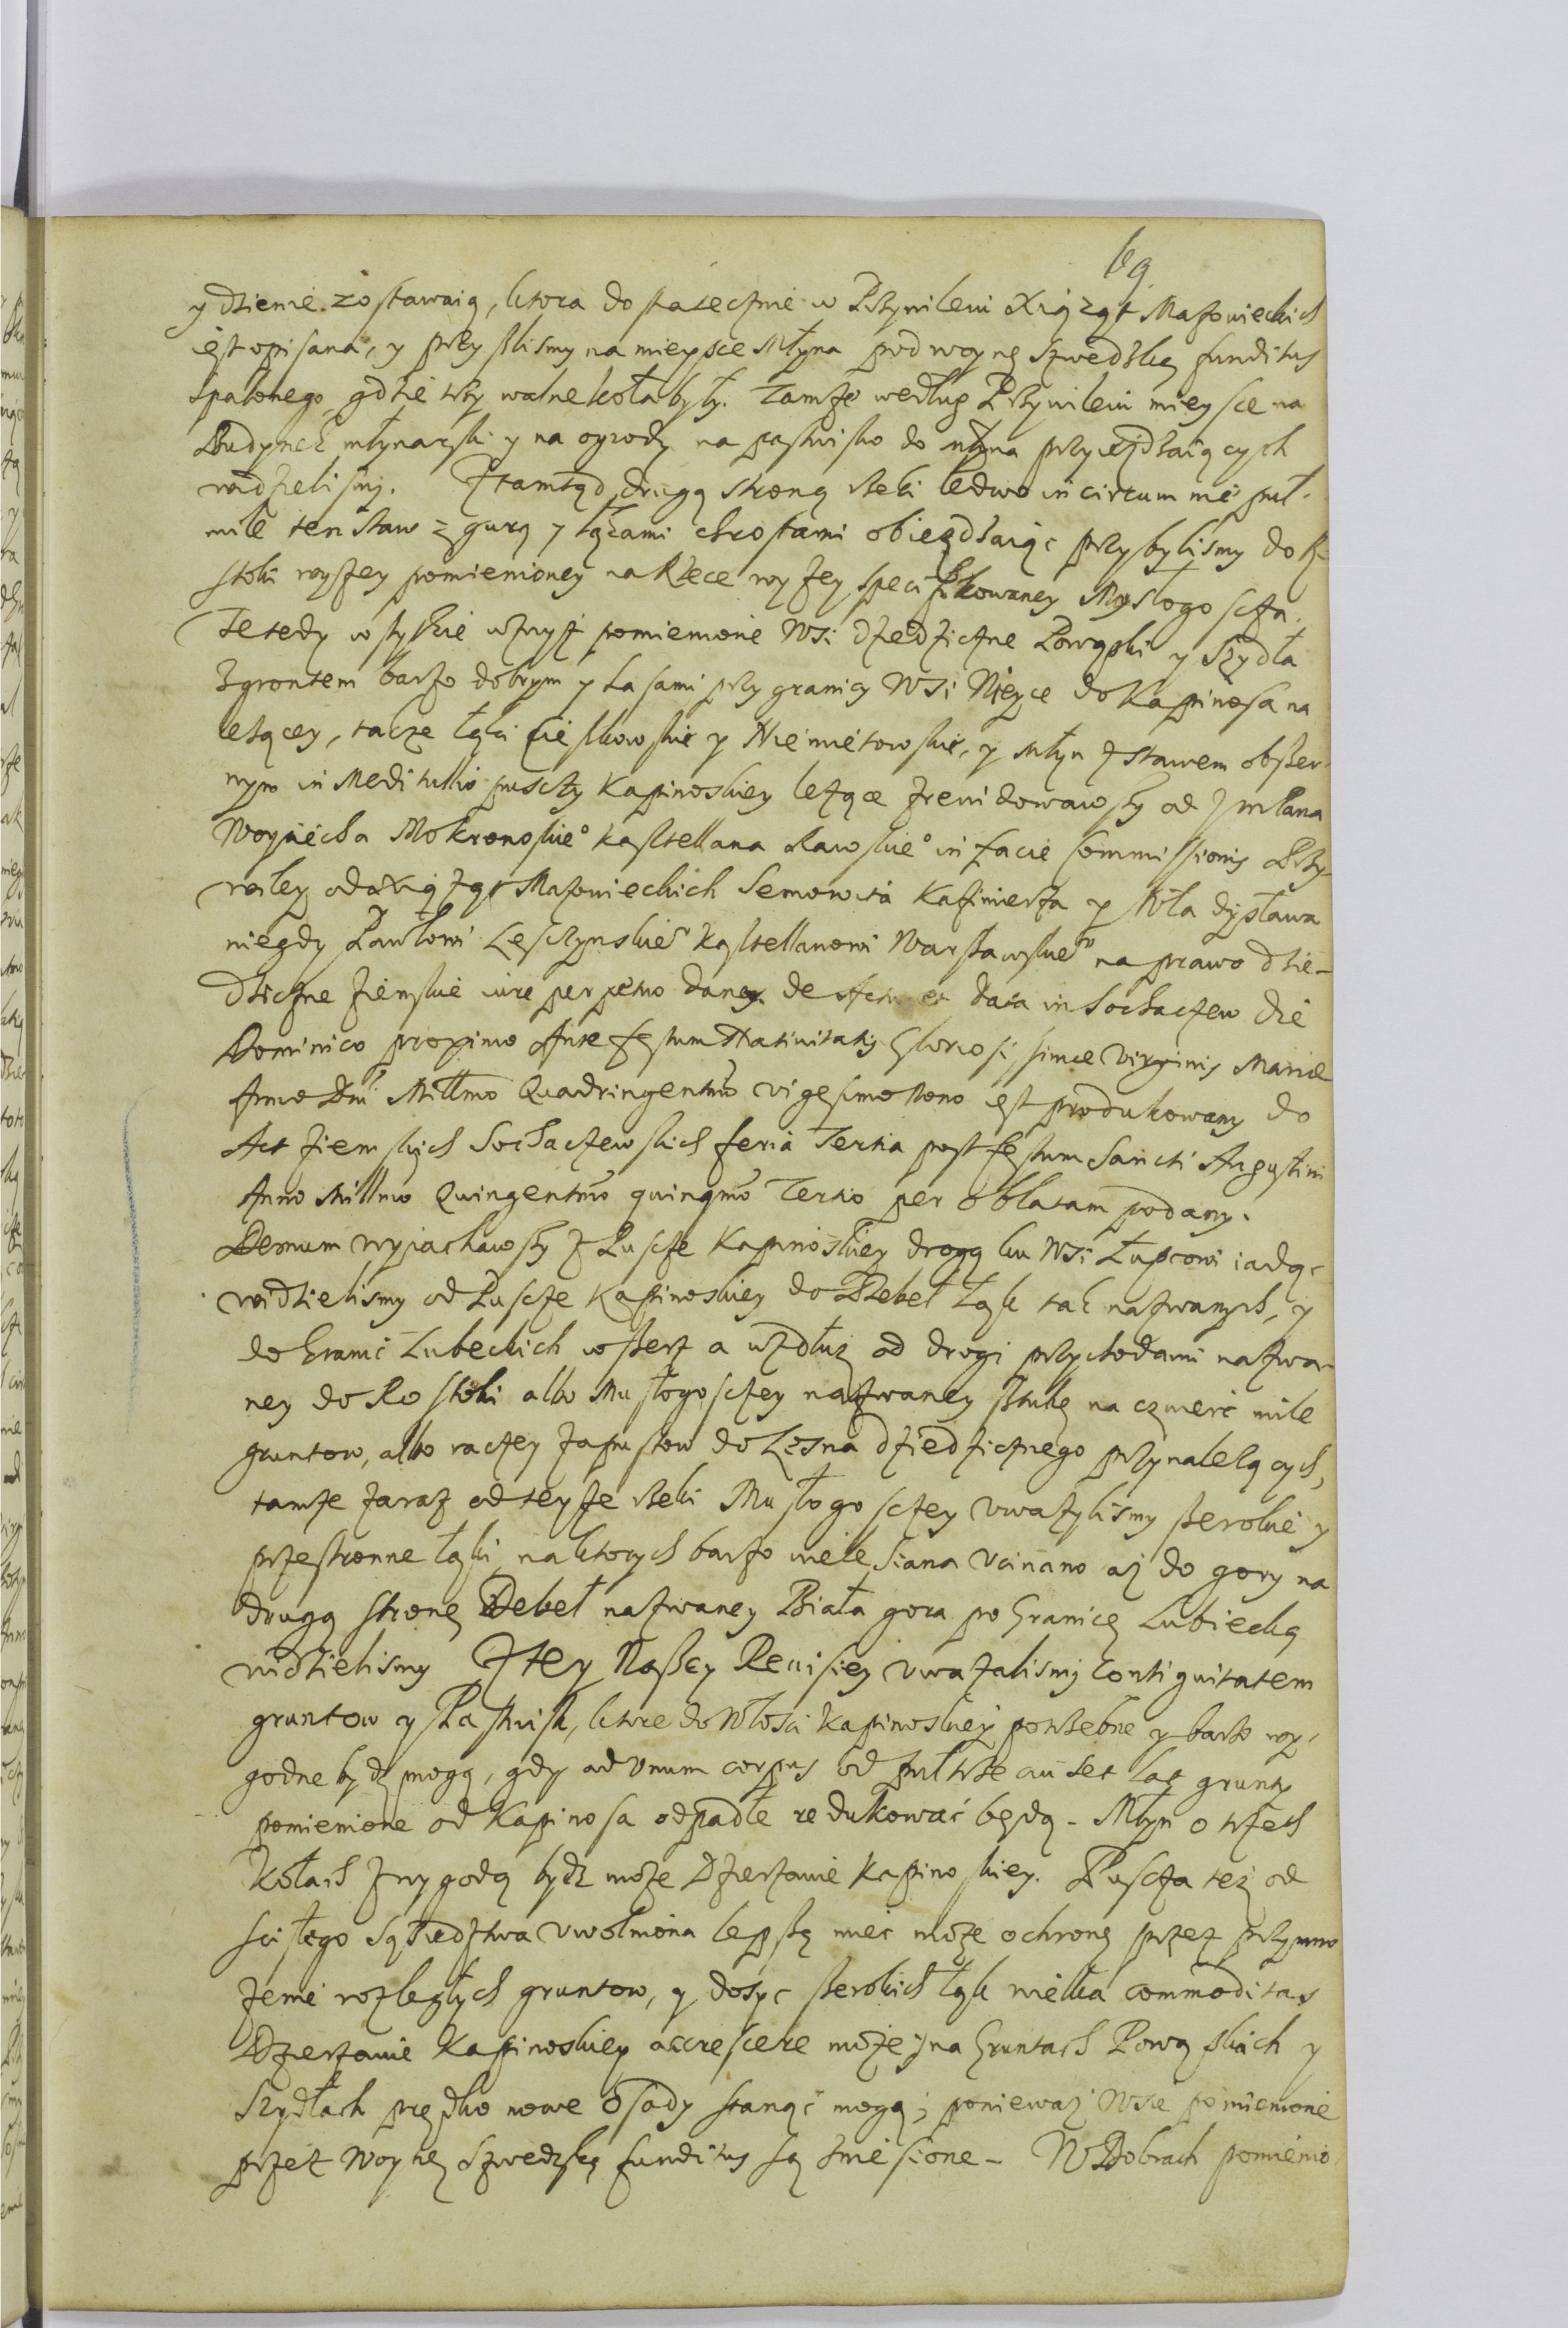 69
y dzienie zostawaią, ktora dostatecznie w Przywileiu Xiąząt Mazowieckich
iest opisana, y przyszlismy na mieysce Młyna pod woynę Szwedzką funditus
spalonego, gdzie trzy walne koła były. Tamże według Przywileiu mieysce na
Budynek młynarski y na ogrody na pastwisko do młyna przyieżdzaiących
widzielismy. Ztamtąd drugą stroną Rzeki ledwo in circum nie puł
mile ten staw z gurą y łąkami chrostami obieżdzaiąc przybylismy do R
stoki wyszey pomienioney na Rzece wyzey specifikowaney Mysłogoscza.
Te tedy wszystkie wzwyż pomienione Wsi dziedziczne Powązki y Szydła
z grontem barzo dobrym y Lasami przy granicy Wsi Nięyce do Kapinosa na
leżącey, także łąki Cieskowskie y Niemietowskie, y Młyn z stawem obszer
nym in Meditullio pusczy Kapinoskiey leżące zrewidowawszy od JmPana
Woyciecha Mokronoskie° Kasztellana Rawskie° in facie Commissionis Przy
wiley od Xiążąt Mazowieckich Semowita Kazimierza y Władysława
niegdy Pawłowi Lesczynskie° Kasztellanowi Warszawskie° na prawo dzie-
dziczne ziemskie iure perpetuo dany. de Actu et data in Sochaczew die
Dominico proximo Ante festum Nativitatis Gloriosissimae Virginis Mariae
Anno Dni Millmo Quadringentmo vigesimo Nono iest produkowany do
Act ziemskich Sochaczewskich feria Tertia post festum Sancti Augustini
Anno Millmo Quingentmo quinqmo Tertio per oblatam podany.
Demum wyiachawszy z Puscze Kapinoskiey drogą ku Wsi Łupcowi iadąc
widzielismy od Puscze Kapinoskiey do Debeł Łąk tak nazwanych, y
do Granic Lubeckich wszerz a wzdłuz od drogi przychodami nazwa-
ney do Rostoki albo Musłogosczey nazwaney sztukę na czwierć mile
gruntow, albo raczey zapustow do Lesna dziedzicznego przynalezących,
tamże zaraz od teyże Rzeki Musłogosczey uwazylismy szerokie y
przestronne łąki, na ktorych barzo wiele siana ucinano aż do gory na
drugą stronę Debeł nazwaney Biała gora po Granicę Lubiecką
widzielismy Z tey Naszey Rewisiey uwazalismy Contiguitatem
gruntow y Pastwisk, ktore do Włosci Kapinoskiey potrzebne y barzo wy-
godne bydz mogą, gdy ad Unum corpus od pułtrzeciu set lat grunty
pomienione od Kapinosa odpadłe redukować będą - Młyn o trzech
Kołach z wygodą bydz może Dzierżawie Kapinoskiey. Puscza też od
scisłego sąsiedztwa uwolniona lepszą mieć może ochronę przez przymno
żenie rozległych gruntow, y dosyć szerokich łąk wielka commoditas
Dzierżawie Kapinoskiey accrescere może, y na Gruntach Powąskich y
Szydłach prędko nowe Osady stanąć mogą; poniewaz Wsie pomienione
przez Woynę Szwedzką funditus są zniesione - W Dobrach pomienio